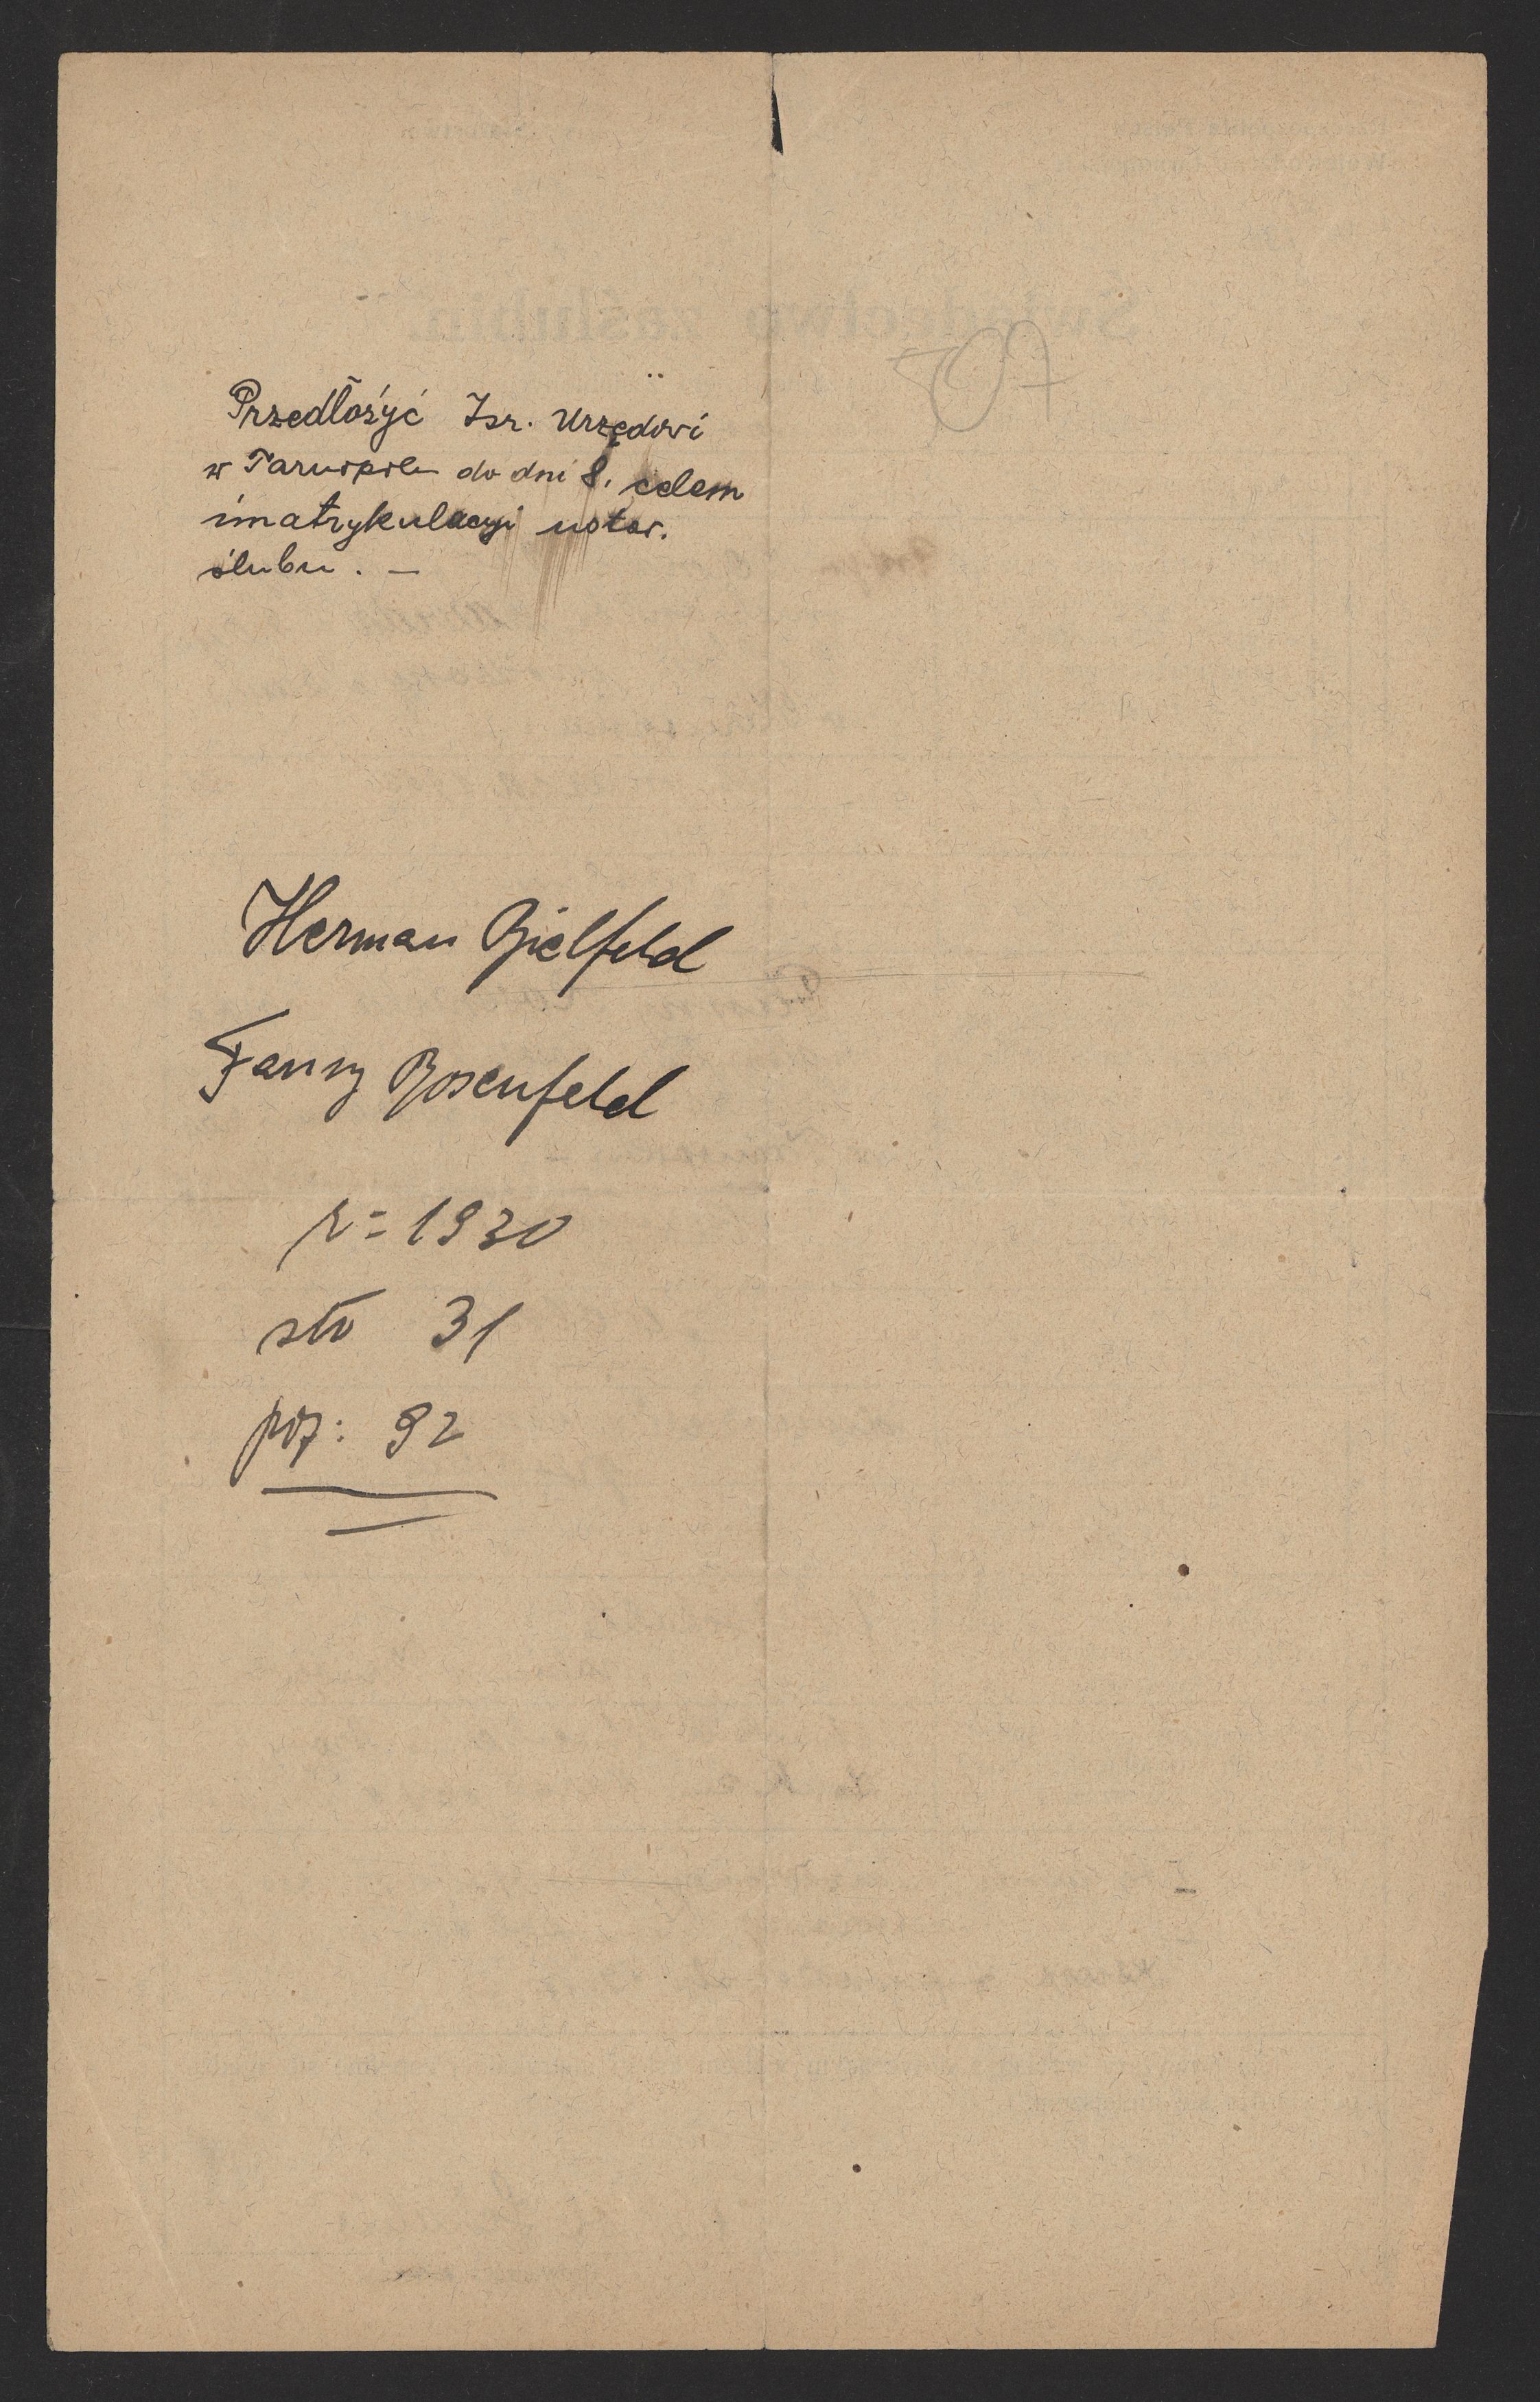 Przedłożyć Izr. Urzędowi
w Tarnopolu do dni 8. celem
imatrykulacyi notar.
ślubu. —
Herman Bielfeld
Fanny Rosenfeld
r = 1930
str 31
poz: 92